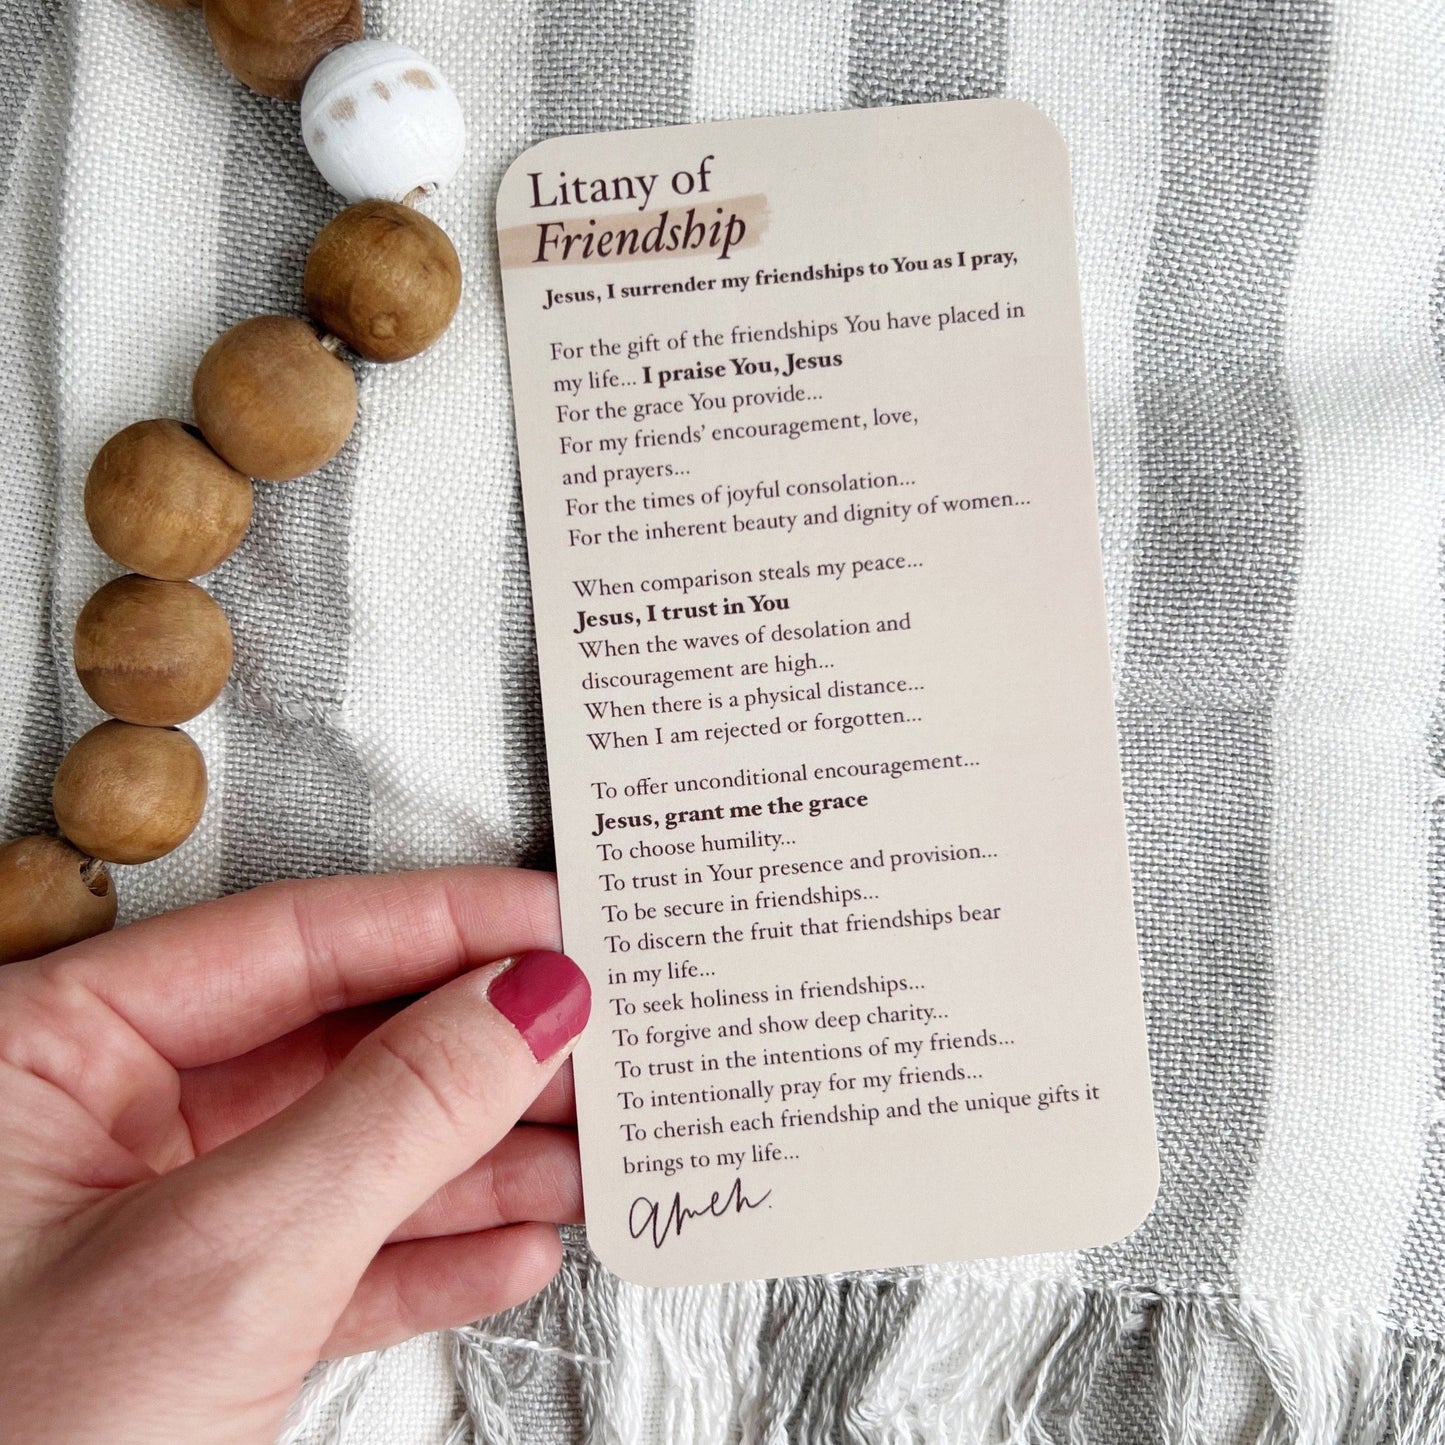 Litany of
Friendship
Jesus, I surrender my friendships to You as I pray,
For the gift of the friendships You have placed in
my life... I praise You, Jesus
For the grace You provide...
For my friends’ encouragement, love,
and prayers...
For the times of joyful consolation...
For the inherent beauty and dignity of women...
When comparison steals my peace...
Jesus, I trust in You
When the waves of desolation and
discouragement are high...
When there is a physical distance...
When I am rejected or forgotten...
To offer unconditional encouragement...
Jesus, grant me the grace
To choose humility...
To trust in Your presence and provision...
To be secure in friendships...
To discern the fruit that friendships bear
in my life...
To seek holiness in friendships...
To forgive and show deep charity...
To trust in the intentions of my friends...
To intentionally pray for my friends...
To cherish each friendship and the unique gifts it
brings to my life...
Amen.